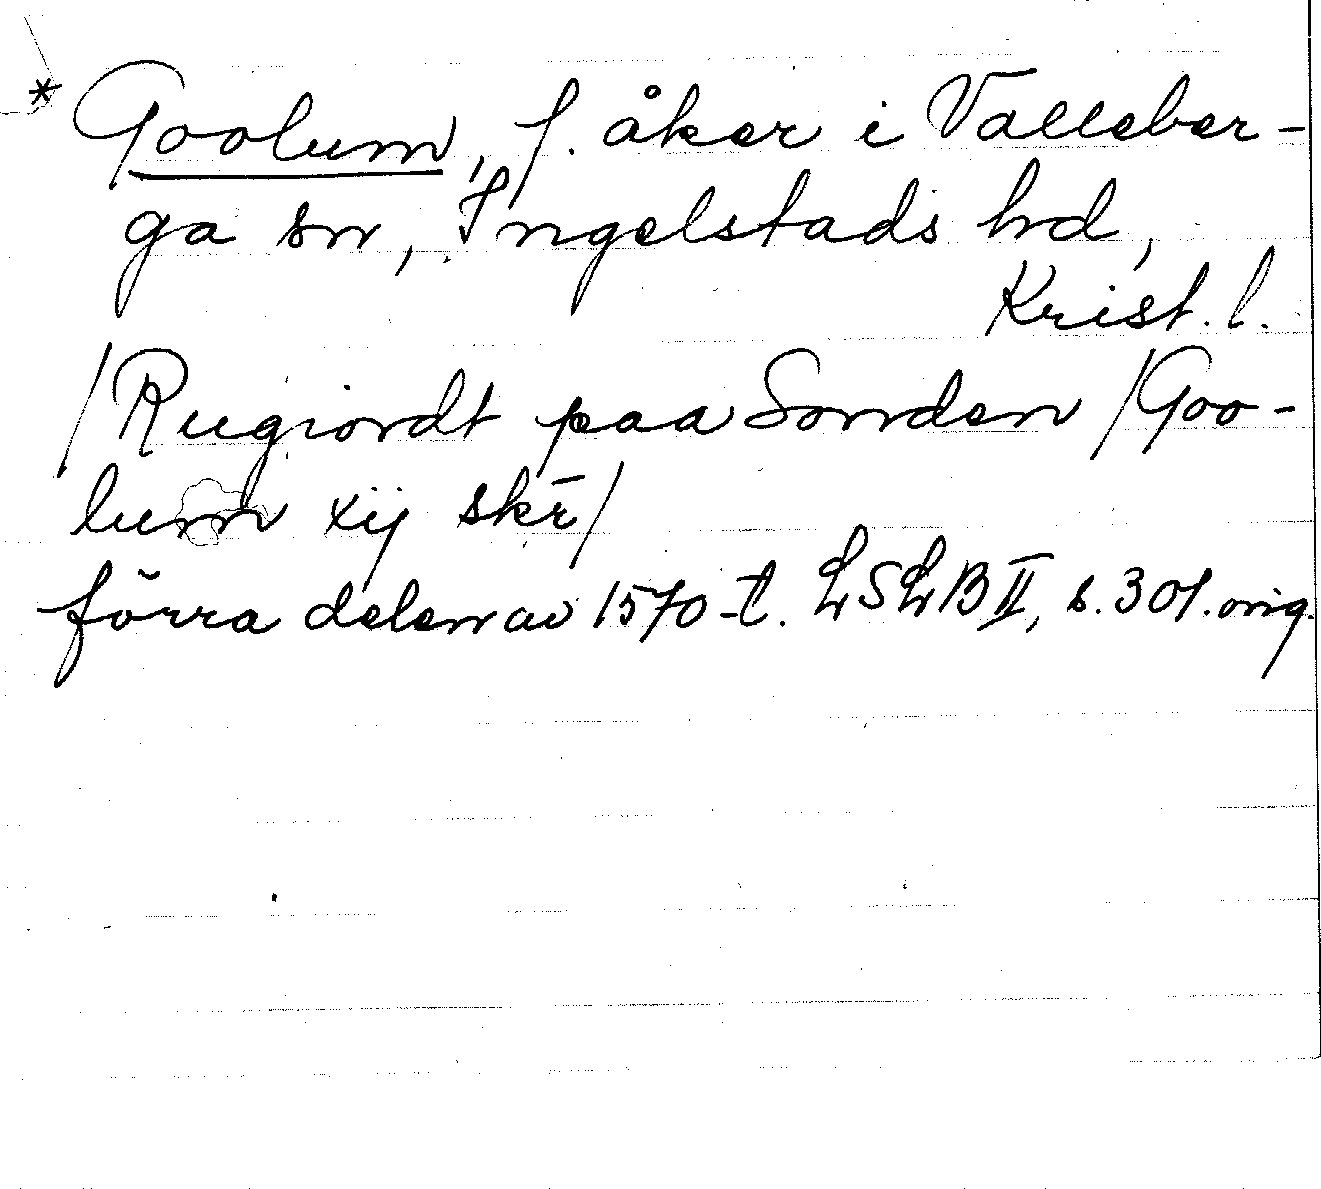 * Goolum, f. åker i Valleber-
ga sn, Ingelstads hd,
Krist. l.
/Rugiordt paa Sonden /Goo-
lum xij skr̄/
förra delen av 1570-t. LSLB II, s. 301. orig.